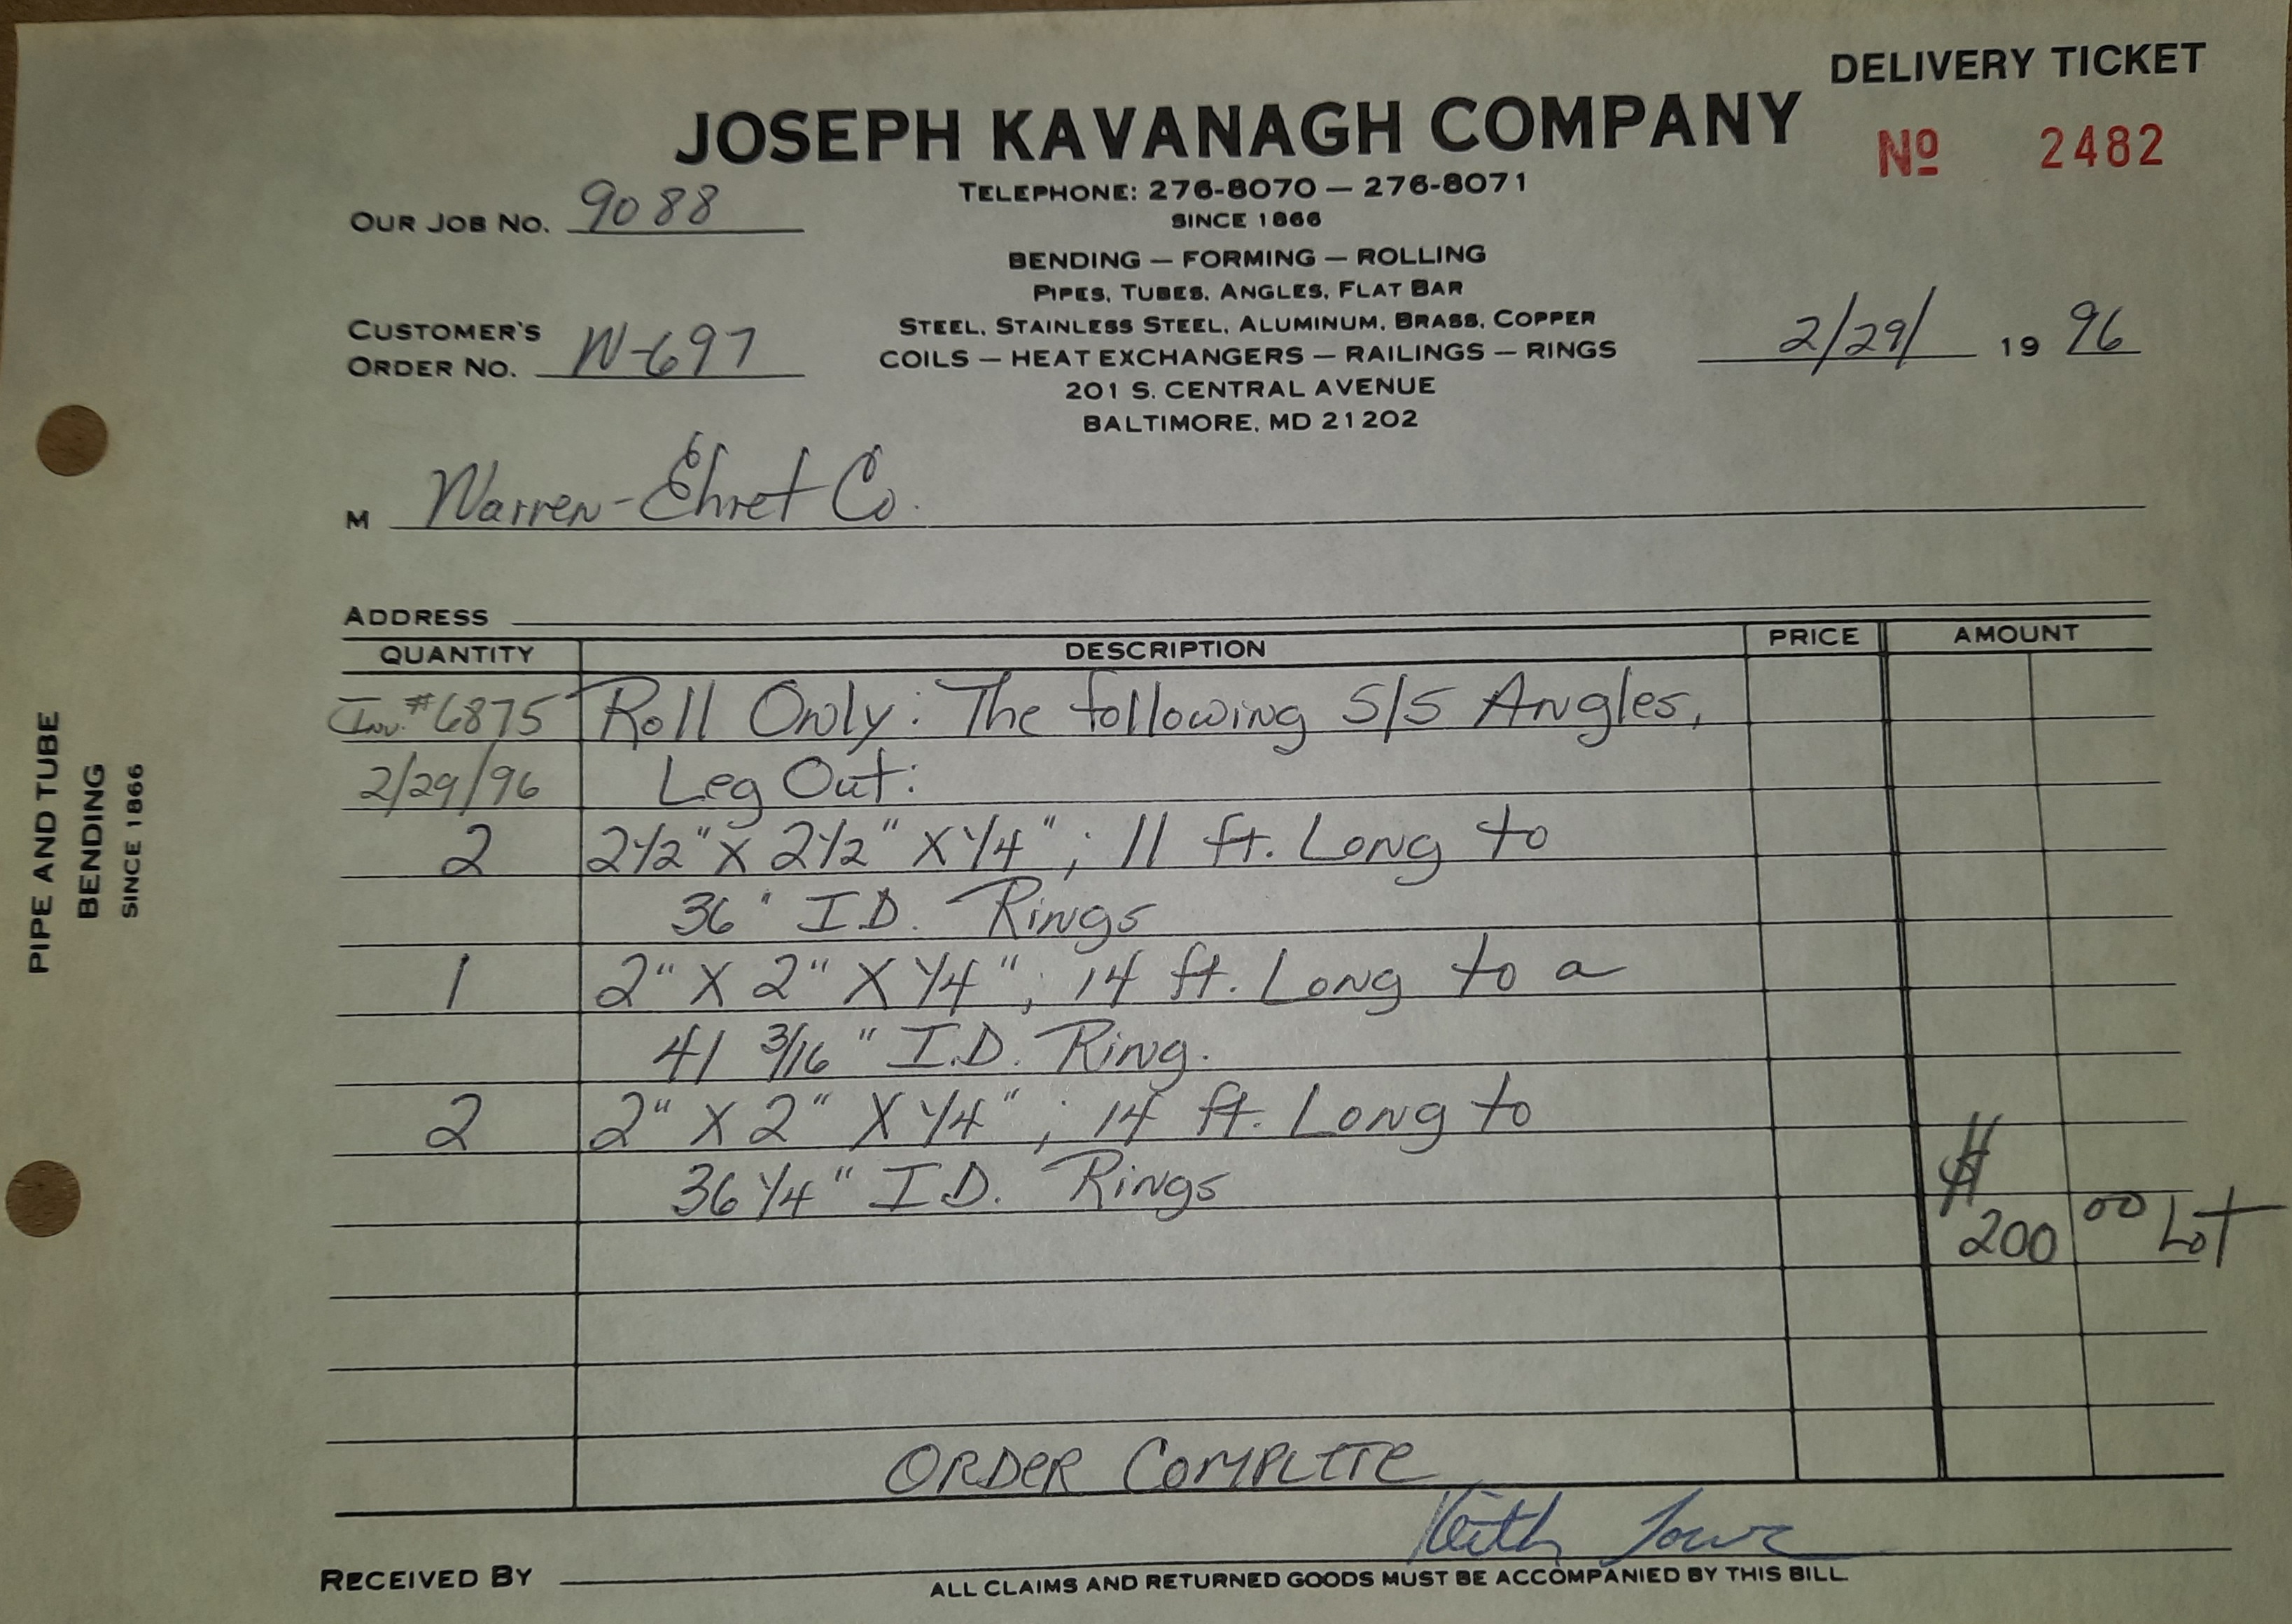 DELIVERY TICKET
JOSEPH KAVANAGH COMPANY
Nº 2482
TELEPHONE: 276-8070 — 276-8071
OUR JOB NO. 9088
SINCE 1866
BENDING — FORMING — ROLLING
PIPES, TUBES, ANGLES, FLAT BAR
CUSTOMER'S
ORDER NO. W-697
STEEL, STAINLESS STEEL, ALUMINUM, BRASS, COPPER
COILS — HEAT EXCHANGERS — RAILINGS — RINGS
2/29/ 19 96
201 S. CENTRAL AVENUE
BALTIMORE, MD 21202
M Warren-Ehret Co.
ADDRESS
QUANTITY DESCRIPTION PRICE AMOUNT
Inv. #6875 Roll Only: The following S/S Angles,
2/29/96 Leg Out:
2 2 1/2" X 2 1/2" X 1/4"; 11 ft. Long to
36" I.D. Rings
1 2" X 2" X 1/4"; 14 ft. Long to a
41 3/16" I.D. Ring.
2 2" X 2" X 1/4"; 14 ft. Long to
36 1/4" I.D. Rings
$
200 00 Lot
ORDER COMPLETE
RECEIVED BY Keith
ALL CLAIMS AND RETURNED GOODS MUST BE ACCOMPANIED BY THIS BILL
PIPE AND TUBE
BENDING
SINCE 1866